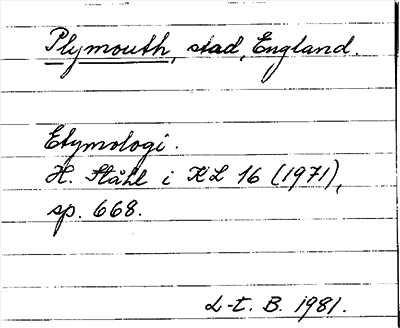 Plymouth, stad, England.
Etymologi.
H. Ståhl i KL 16 (1971),
sp. 668.
L-t. B. 1981.